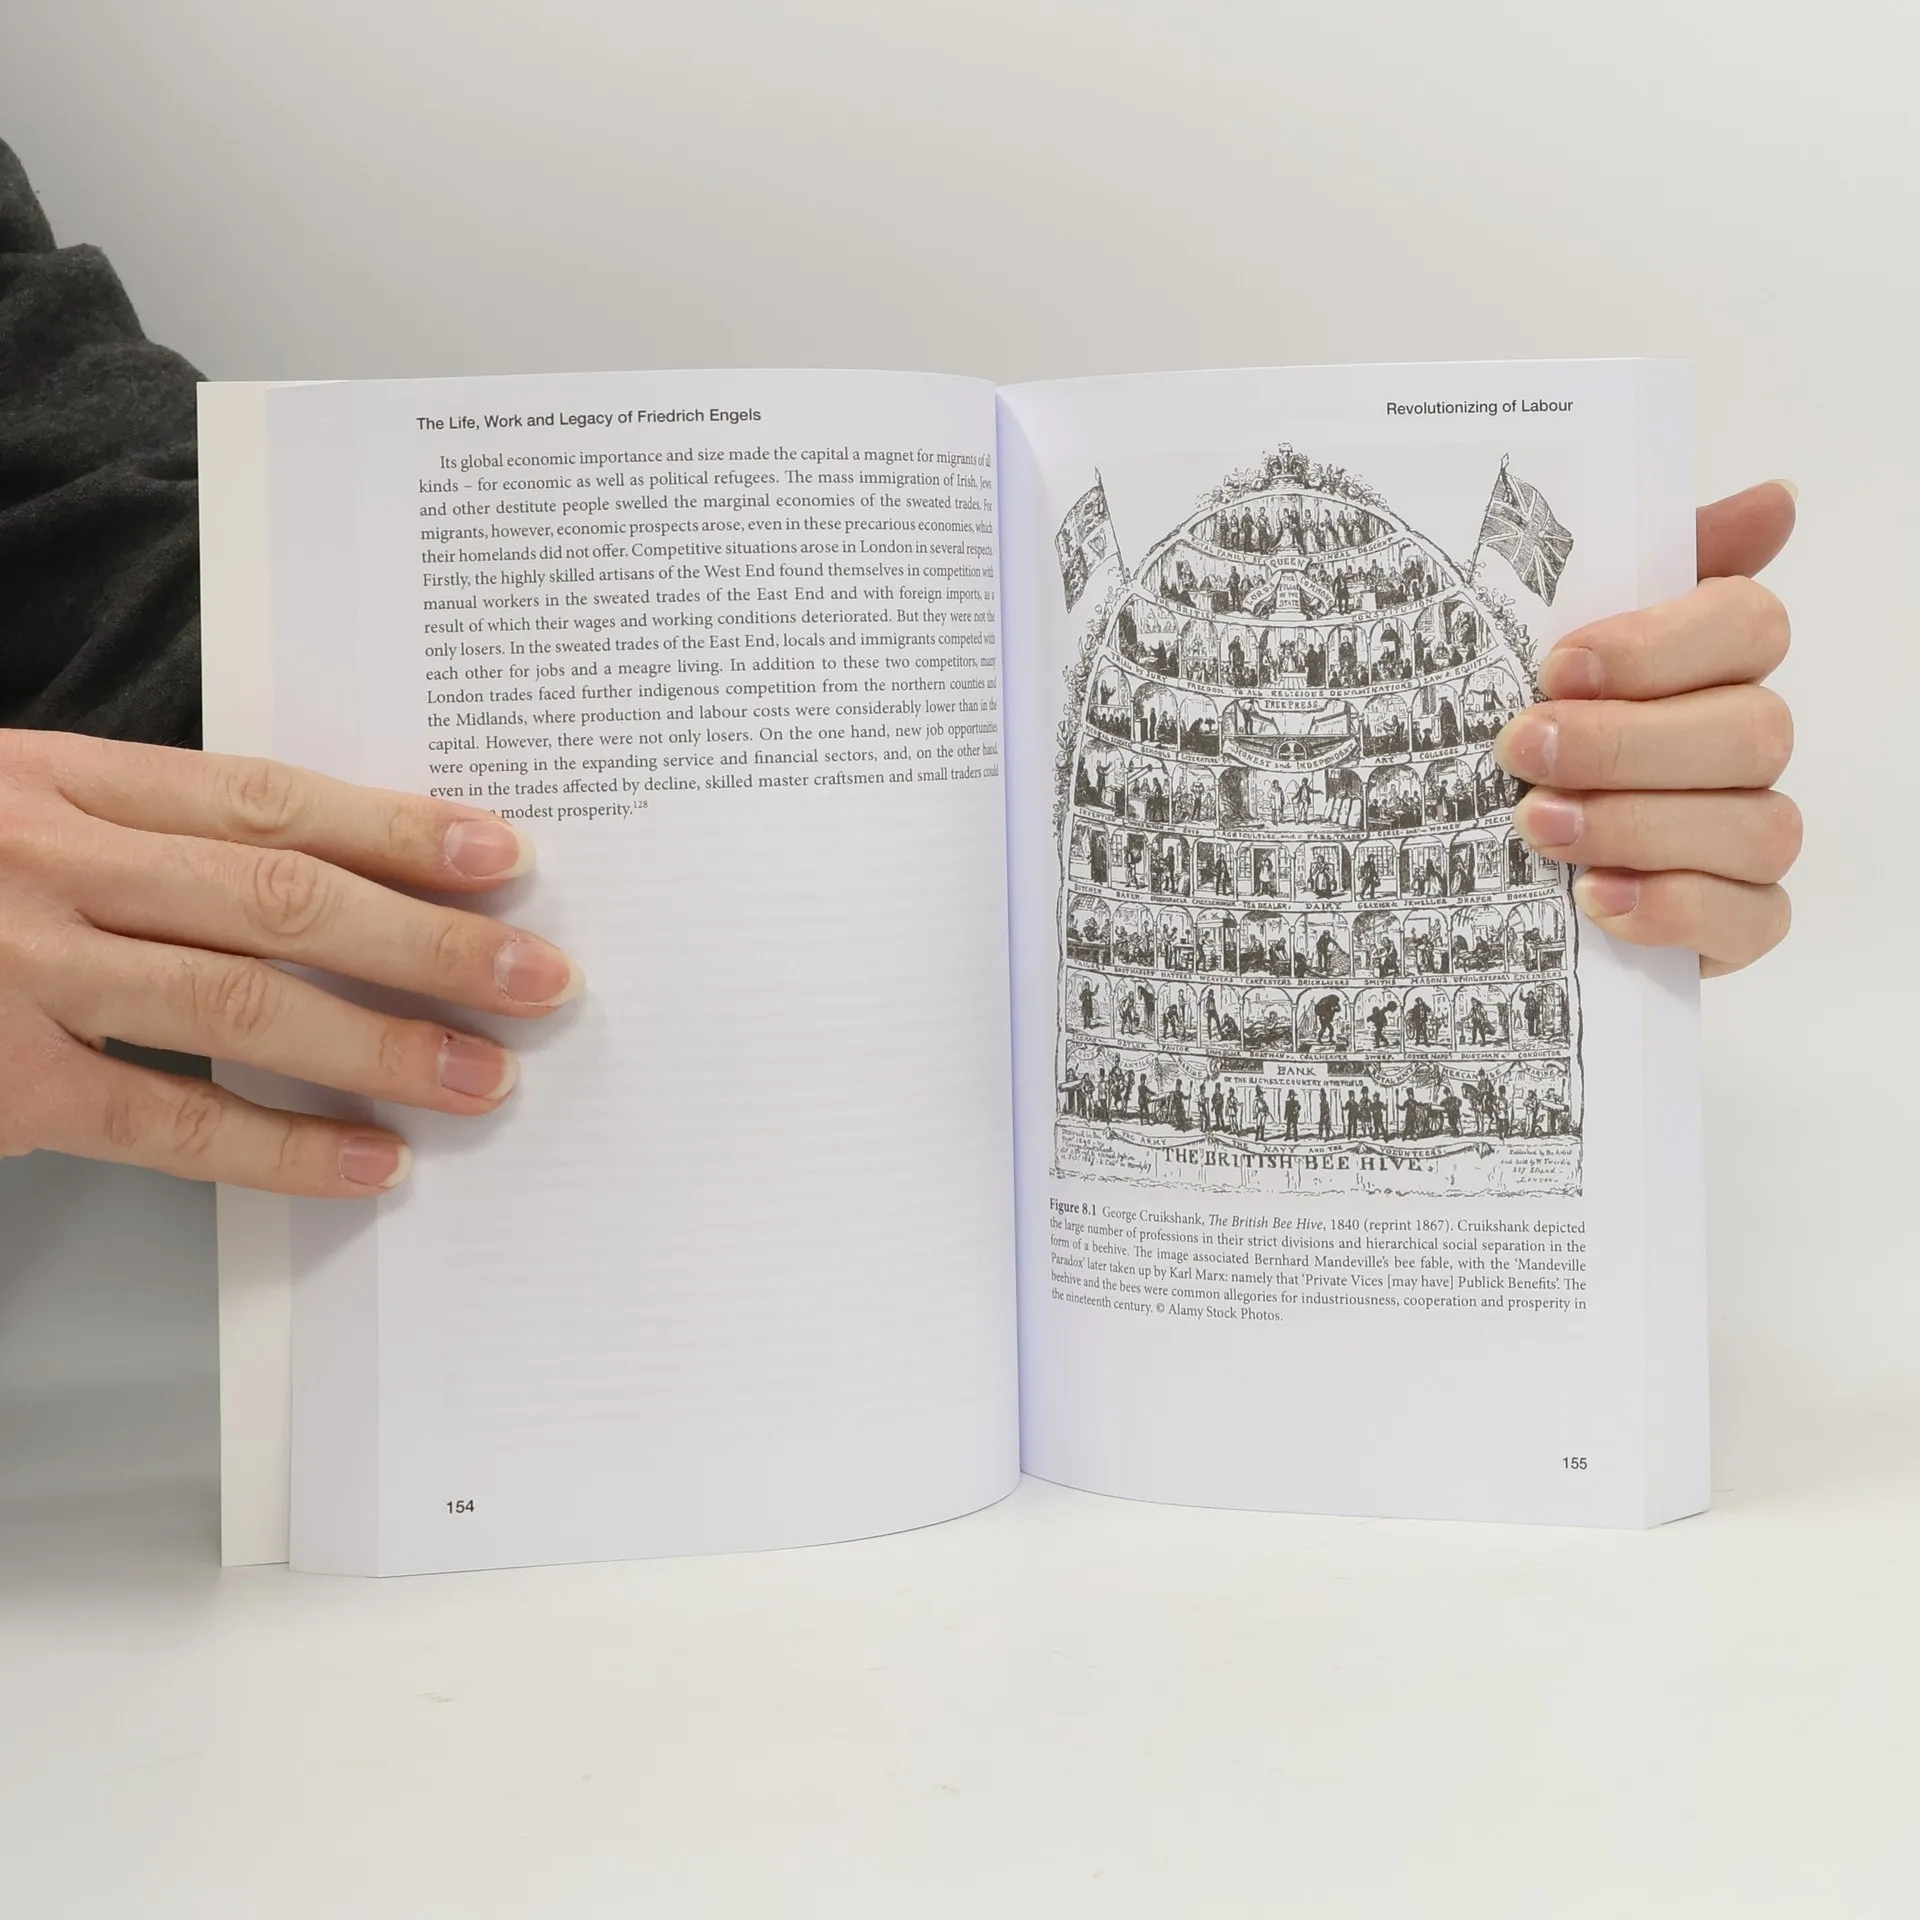 The Life, Work and Legacy of Friedrich Engels
Its global economic importance and size made the capital a magnet for migrants of all
kinds – for economic as well as political refugees. The mass immigration of Irish, Jews
and other destitute people swelled the marginal economies of the sweated trades. For
migrants, however, economic prospects arose, even in these precarious economies, which
their homelands did not offer. Competitive situations arose in London in several respects.
Firstly, the highly skilled artisans of the West End found themselves in competition with
manual workers in the sweated trades of the East End and with foreign imports, as a
result of which their wages and working conditions deteriorated. But they were not the
only losers. In the sweated trades of the East End, locals and immigrants competed with
each other for jobs and a meagre living. In addition to these two competitors, many
London trades faced further indigenous competition from the northern counties and
the Midlands, where production and labour costs were considerably lower than in the
capital. However, there were not only losers. On the one hand, new job opportunities
were opening in the expanding service and financial sectors, and, on the other hand,
even in the trades affected by decline, skilled master craftsmen and small traders could
modest prosperity.128
154
Revolutionizing of Labour
ROYAL FAMILY BY LINEAL DESCENT
QUEEN
LORDS COMMONS
THE BRITISH CONSTITUTION
TRIAL BY JURY FREEDOM TO ALL RELIGIOUS DENOMINATIONS LAW & EQUITY
FREE PRESS
HONEST and INDEPENDENT
SCHOOLS LITERATURE ART COLLEGES
AGRICULTURE and FREE TRADE
BUTCHER BAKER TEA DEALER DAIRY GLAZIER JEWELLER DRAPER BOOKSELLER
BOOTMAKERS HATTERS WEAVERS CARPENTERS BRICKLAYERS SMITHS MASONS UPHOLSTERERS ENGINEERS
PAVIOR SHOEBLACK BOATMAN COALHEAVER SWEEP COSTER DUSTMAN CONDUCTOR
BANK
OF THE RICHEST COUNTRY IN THE WORLD
THE ARMY THE NAVY AND THE VOLUNTEERS
THE BRITISH BEE HIVE.
Figure 8.1 George Cruikshank, The British Bee Hive, 1840 (reprint 1867). Cruikshank depicted
the large number of professions in their strict divisions and hierarchical social separation in the
form of a beehive. The image associated Bernhard Mandeville's bee fable, with the 'Mandeville
Paradox' later taken up by Karl Marx: namely that 'Private Vices [may have] Publick Benefits'. The
beehive and the bees were common allegories for industriousness, cooperation and prosperity in
the nineteenth century. © Alamy Stock Photos.
155